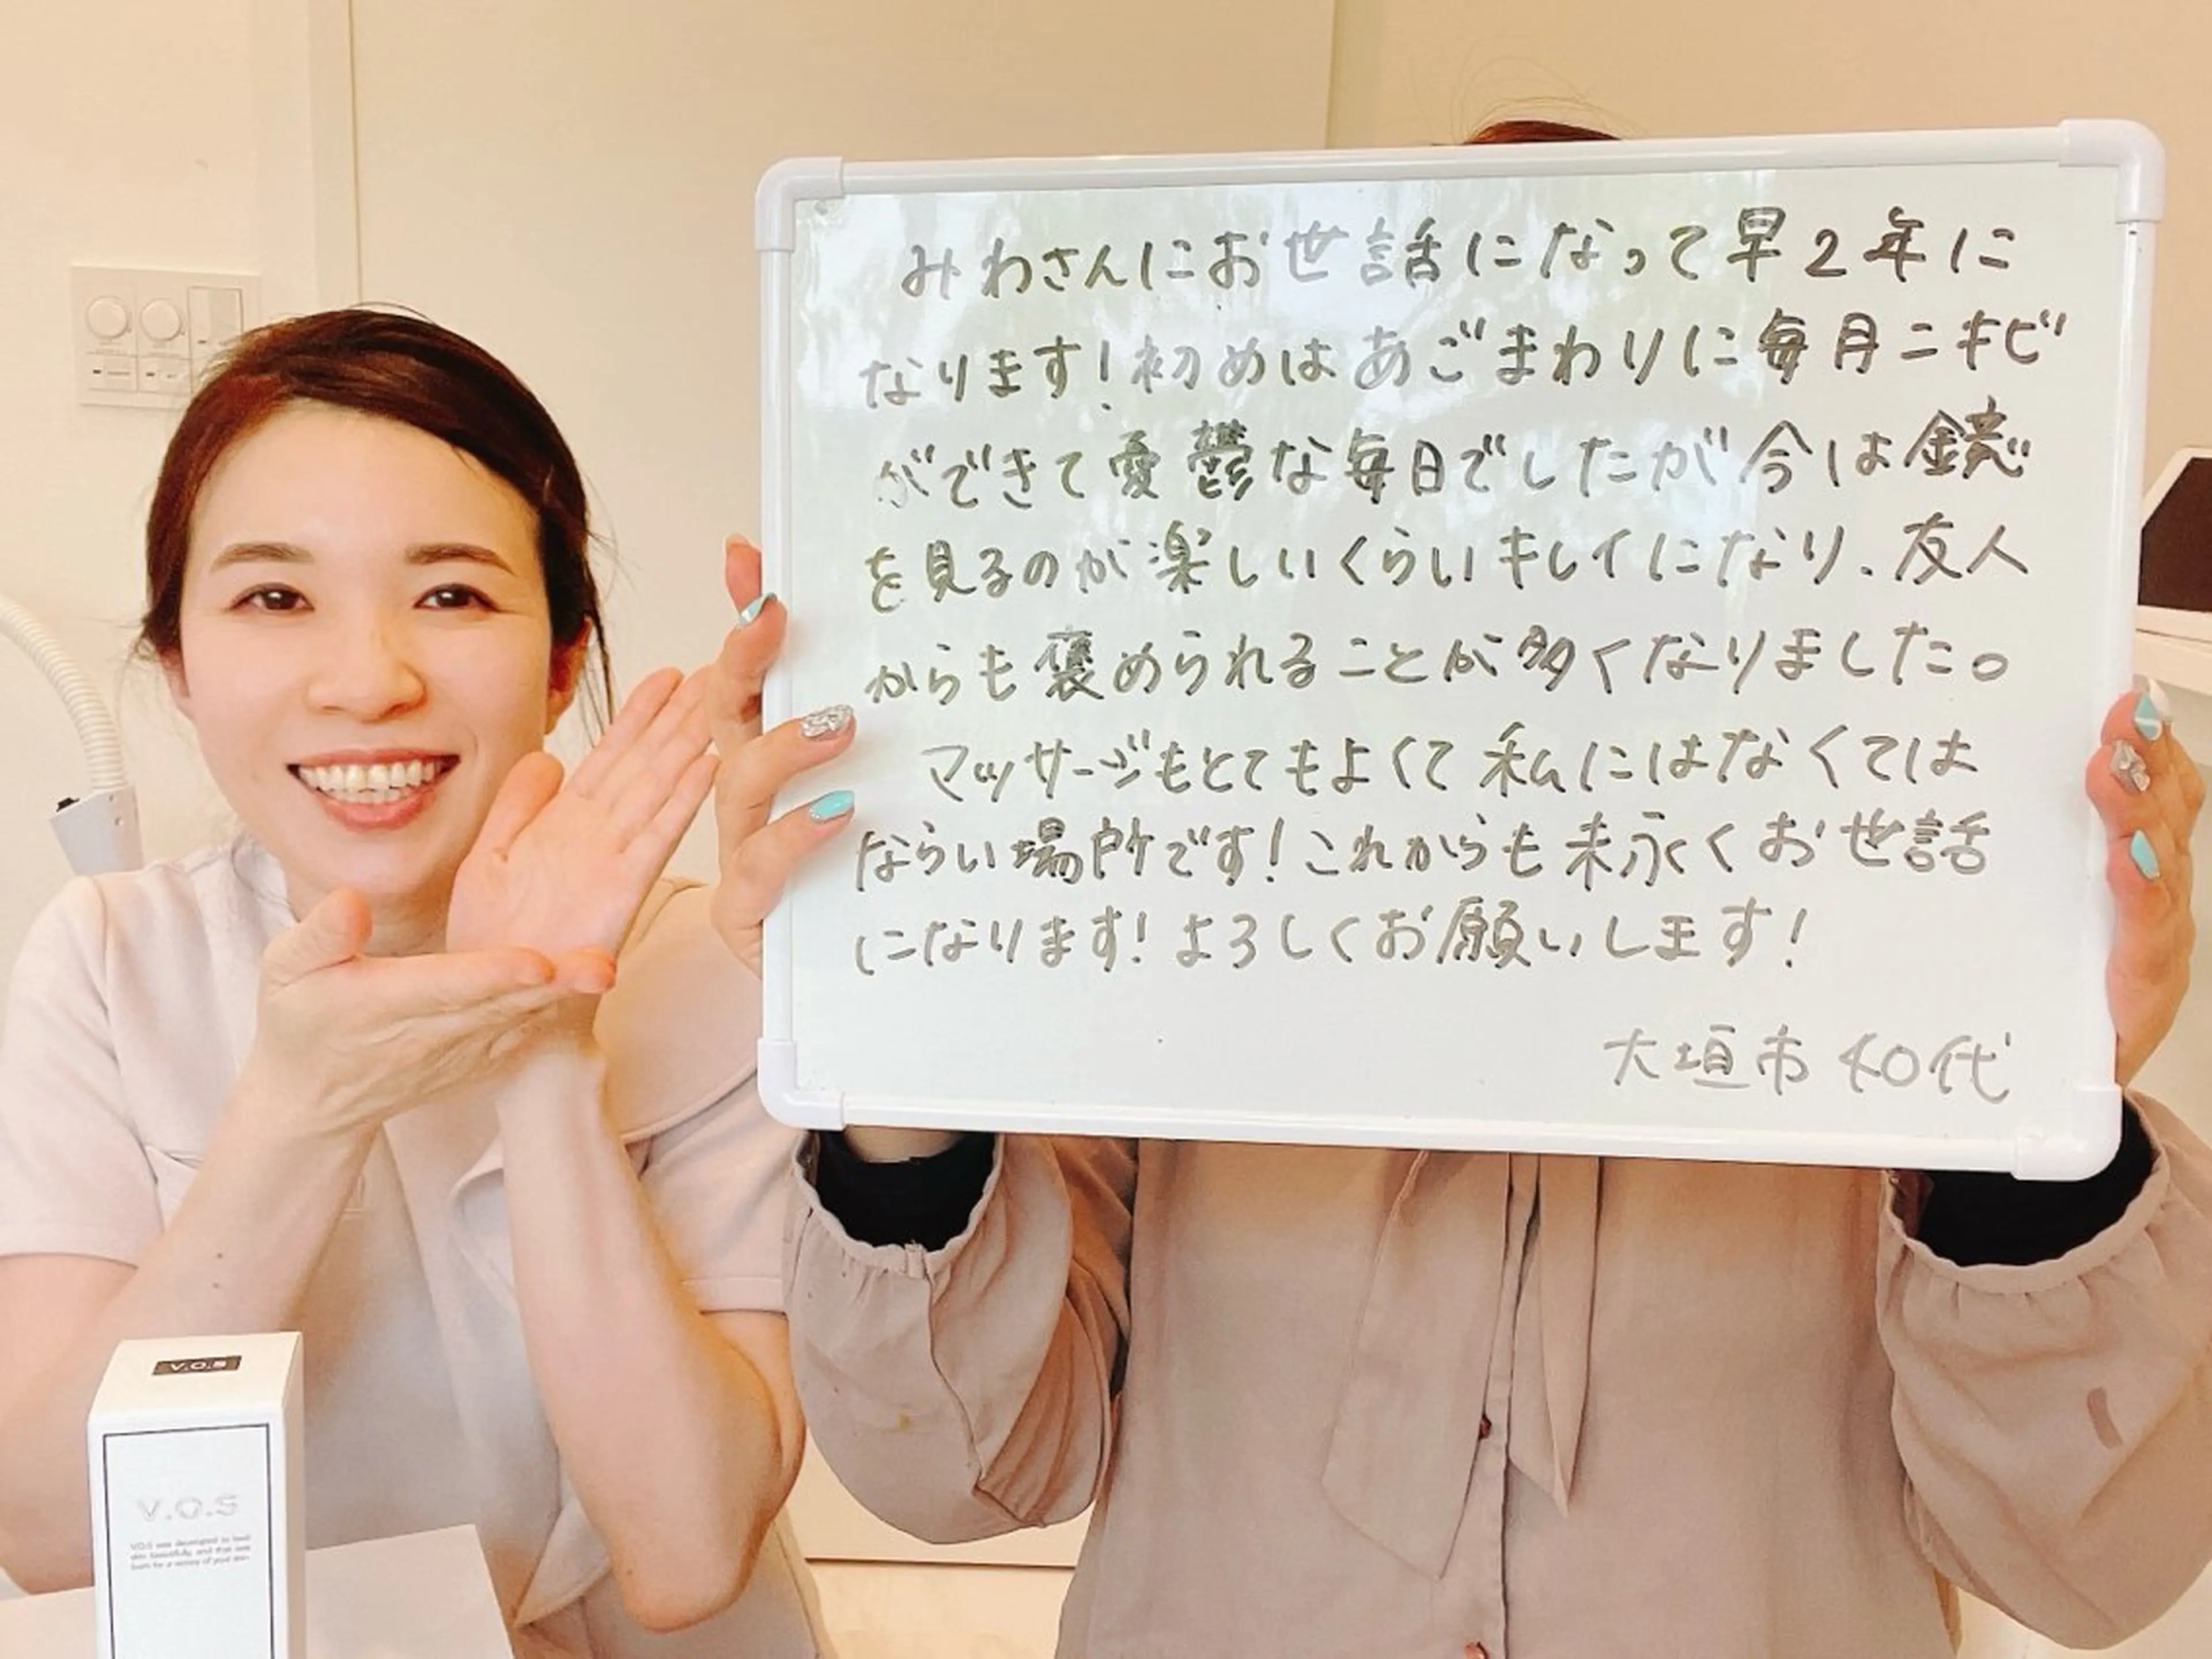 みわさんにお世話になって早2年に
なります！初めはあごまわりに毎月ニキビ
ができて憂鬱な毎日でしたが今は鏡
を見るのが楽しいくらいキレイになり、友人
からも褒められることが多くなりました。
マッサージもとてもよくて私にはなくては
ならい場所です！これからも末永くお世話
になります！よろしくお願いします！
大垣市 40代
V.O.S
V.O.S
V.O.S was developed to heal
skin beautifully, and that was